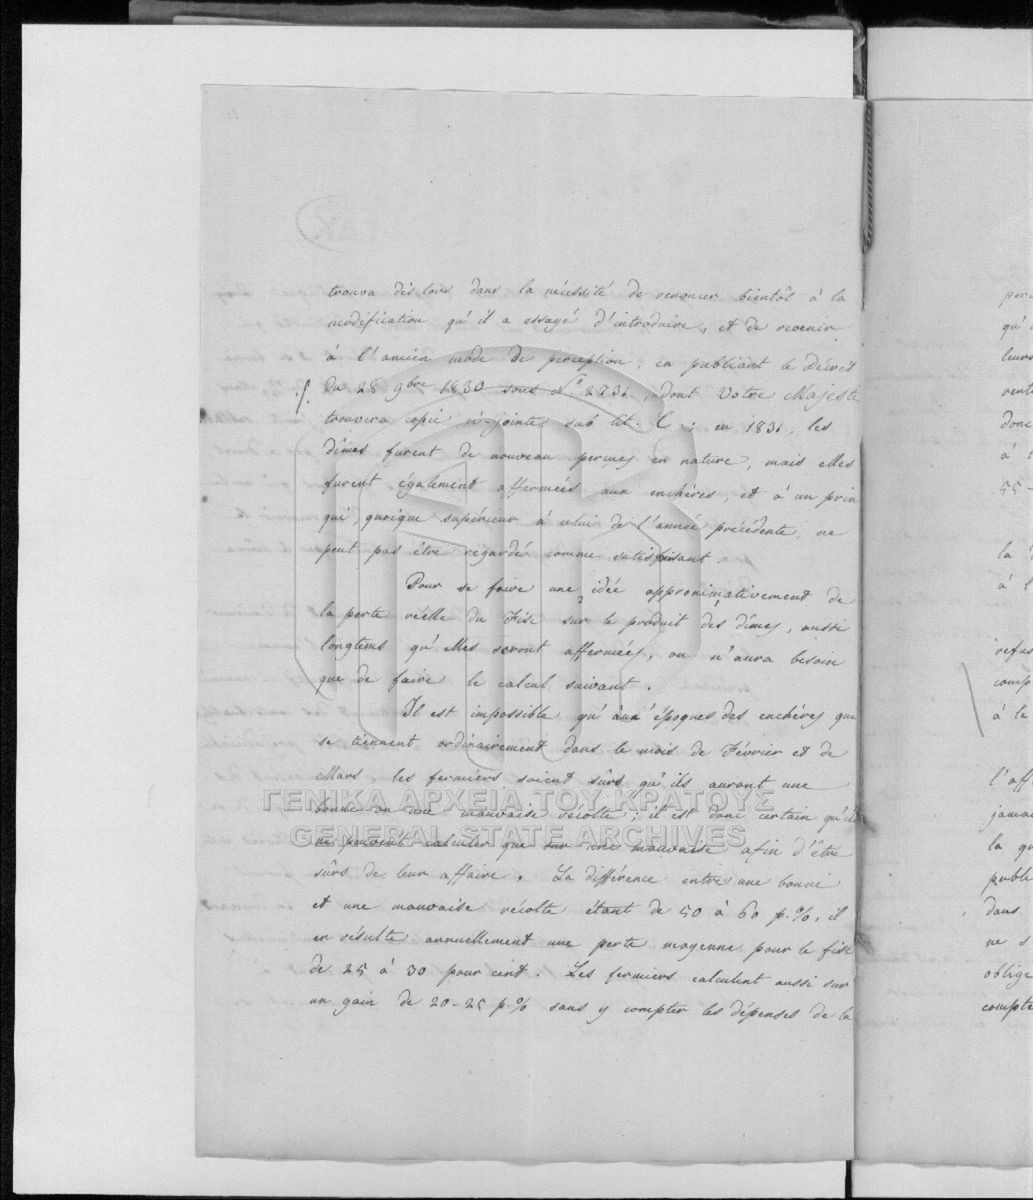 trouva dès lors dans la nécessité de renoncer bientôt à la
modification qu'il a essayé d'introduire, et de revenir
à l'ancien mode de perception, en publiant le Décret
du 28 9bre 1830 sous No 2731, dont Votre Majesté
trouvera copie ci-jointe sub lit. C; en 1831, les
dîmes furent de nouveau perçues en nature, mais elles
furent également affermées aux enchères, et à un prix
qui, quoique supérieur à celui de l'année précédente, ne
peut pas être regardé comme satisfaisant.
Pour se faire une idée approximativement de
la perte réelle du Fisc sur le produit des dîmes, aussi
longtems qu'elles seront affermées, on n'aura besoin
que de faire le calcul suivant.
Il est impossible qu'aux époques des enchères qui
se tiennent ordinairement dans le mois de Février et de
Mars, les fermiers soient sûrs qu'ils auront une
bonne ou une mauvaise récolte; il est donc certain qu'ils
ne peuvent calculer que sur une mauvaise afin d'être
sûrs de leur affaire. La différence entre une bonne
et une mauvaise récolte étant de 50 à 60 p.%, il
en résulte annuellement une perte moyenne pour le fisc
de 25 à 30 pour cent. Les fermiers calculent aussi sur
un gain de 20-25 p.% sans y compter les dépenses de la
ΓΕΝΙΚΑ ΑΡΧΕΙΑ ΤΟΥ ΚΡΑΤΟΥΣ
GENERAL STATE ARCHIVES
qu'
leurs
donc
à l
55-
la
à l
refus
comp
à la
l'aff
jamai
la qu
publi
dans
ne s
oblige
compte